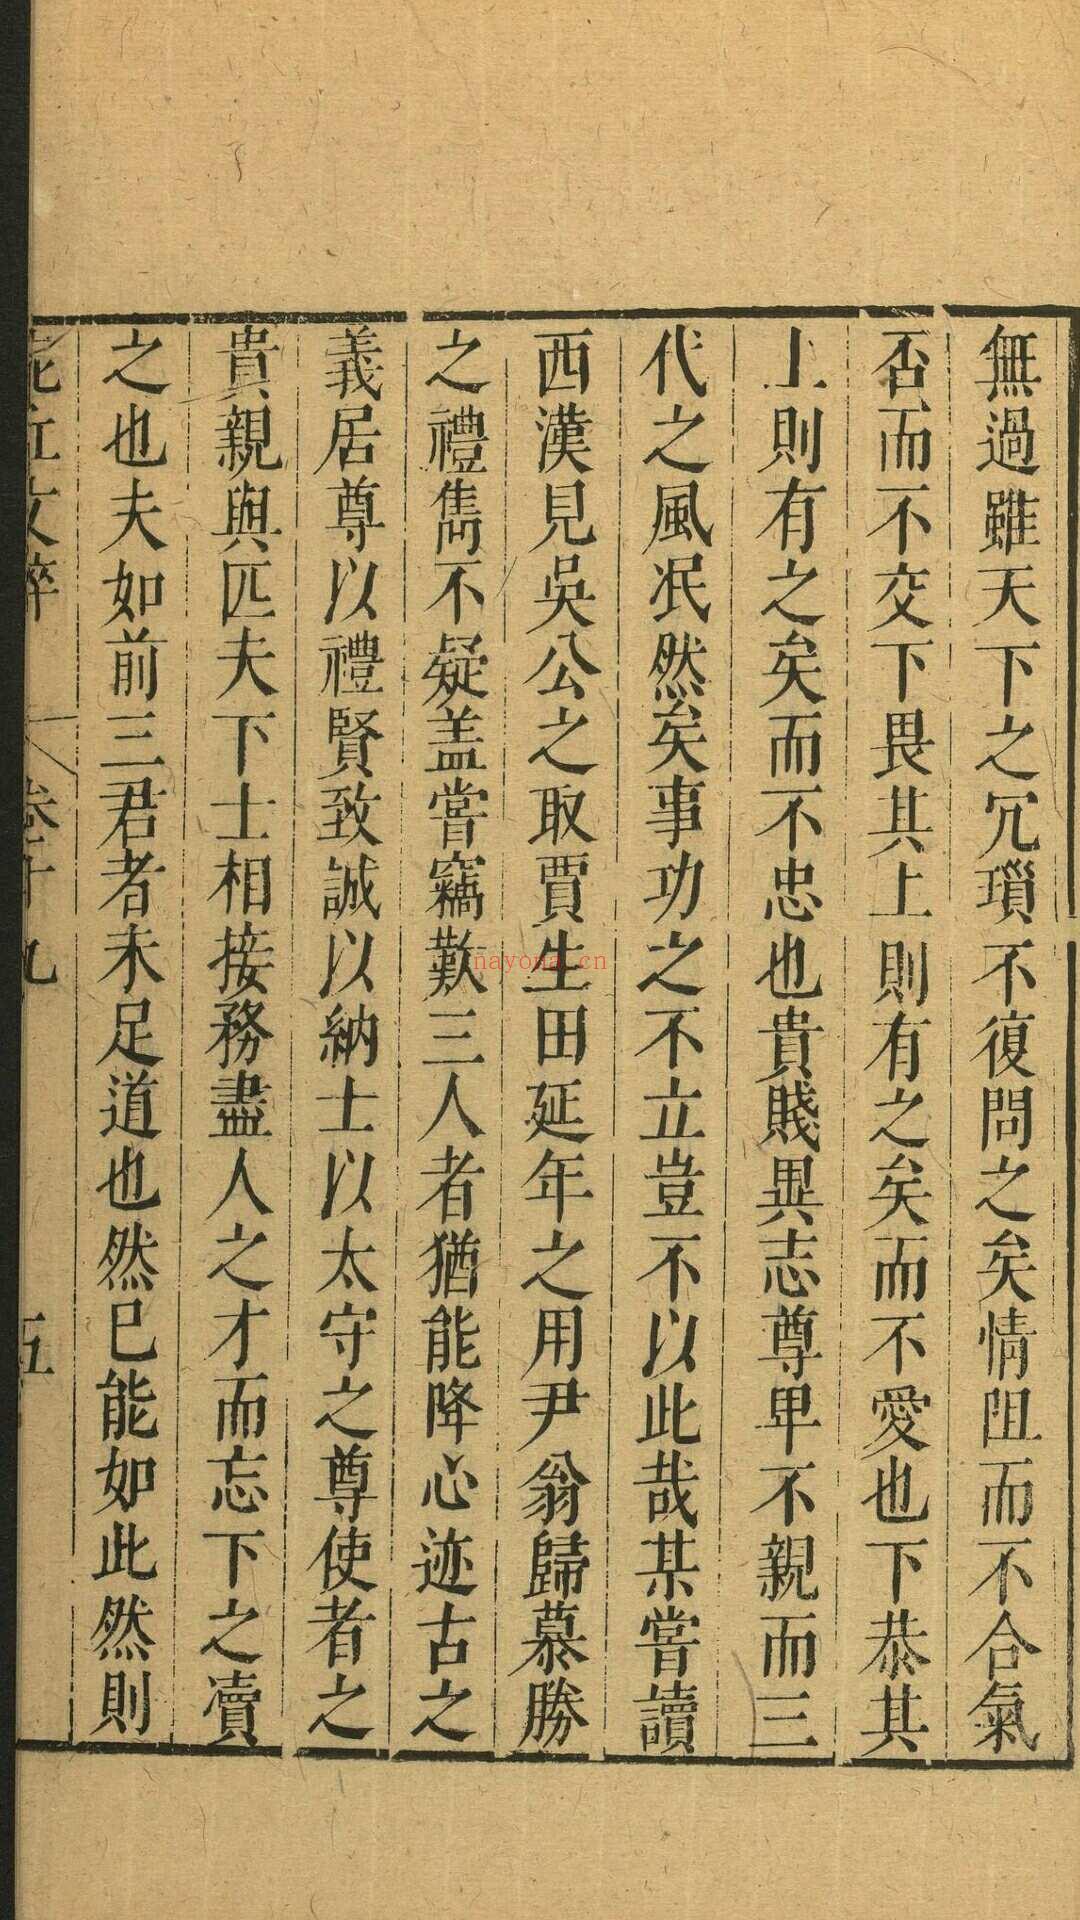 無過雖天下之冗瑣不復問之矣情阻而不合氣
否而不交下畏其上則有之矣而不愛也下恭其
上則有之矣而不忠也貴賤異志尊卑不親而三
代之風冺然矣事功之不立豈不以此哉某嘗讀
西漢見吳公之取賈生田延年之用尹翁歸慕勝
之禮雋不疑盖嘗竊歎三人者猶能降心迹古之
義居尊以禮賢致誠以納士以太守之尊使者之
貴親與匹夫下士相接務盡人之才而忘下之凟
之也夫如前三君者未足道也然巳能如此然則
卷十九
五
nayona.cn